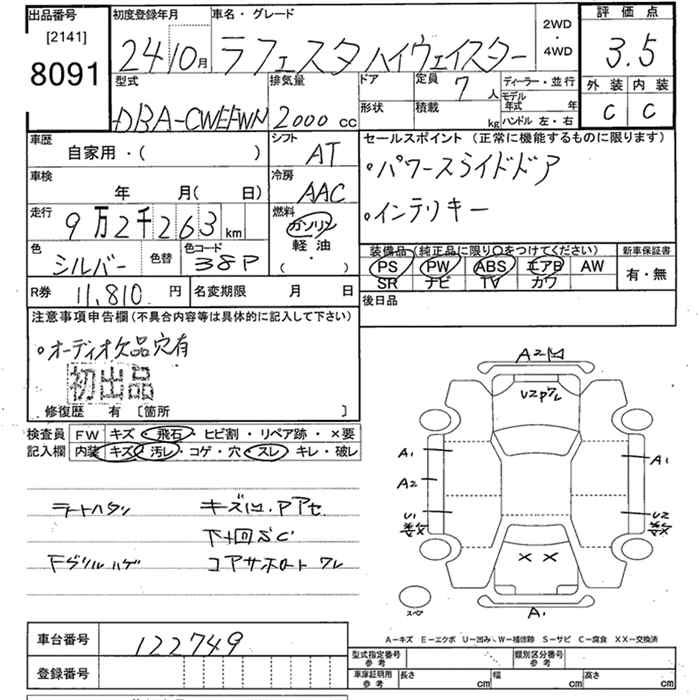 出品番号 初度登録年月 車名・グレード 2WD・4WD 評価点
[2141]
8091 24 10月 ラフェスタ ハイウェイスター 3.5
型式 排気量 ドア 定員 7人 ディーラー・並行 外装 内装
モデル年式 年
DBA-CWEFWN 2000cc 形状 積載 kg ハンドル 左・右 C C
車歴 シフト セールスポイント (正常に機能するものに限ります)
自家用・( ) AT
車検 冷房 •パワースライドドア
年 月( 日) AAC
走行 燃料 •インテリキー
9万2千263km ガソリン
軽油
( ・ )
色 色替 色コード 装備品(純正品に限り○をつけてください) 新車保証書
シルバー 38P PS PW ABS エアB AW 有・無
SR ナビ TV カワ
R券 11,810円 名変期限 月 日 後日品
注意事項申告欄(不具合内容等は具体的に記入して下さい)
•オーディオ欠品穴有
初出品
修復歴 有 [箇所 ]
検査員 FW キズ・飛石・ヒビ割・リペア跡・×要
記入欄 内装 キズ・汚レ・コゲ・穴・スレ・キレ・破レ
A2
A1
A2
U1
A1
U2
×× 
A1
スペア
キズ凹.Pアセ
下廻SC
コアサポートワレ
A-キズ E-エクボ U-凹み W-補修跡 S-サビ C-腐食 XX-交換済
車台番号 122749
登録番号
型式指定番号 参考 類別区分番号 参考
車庫証明用 参考 長さ cm 幅 cm 高さ cm